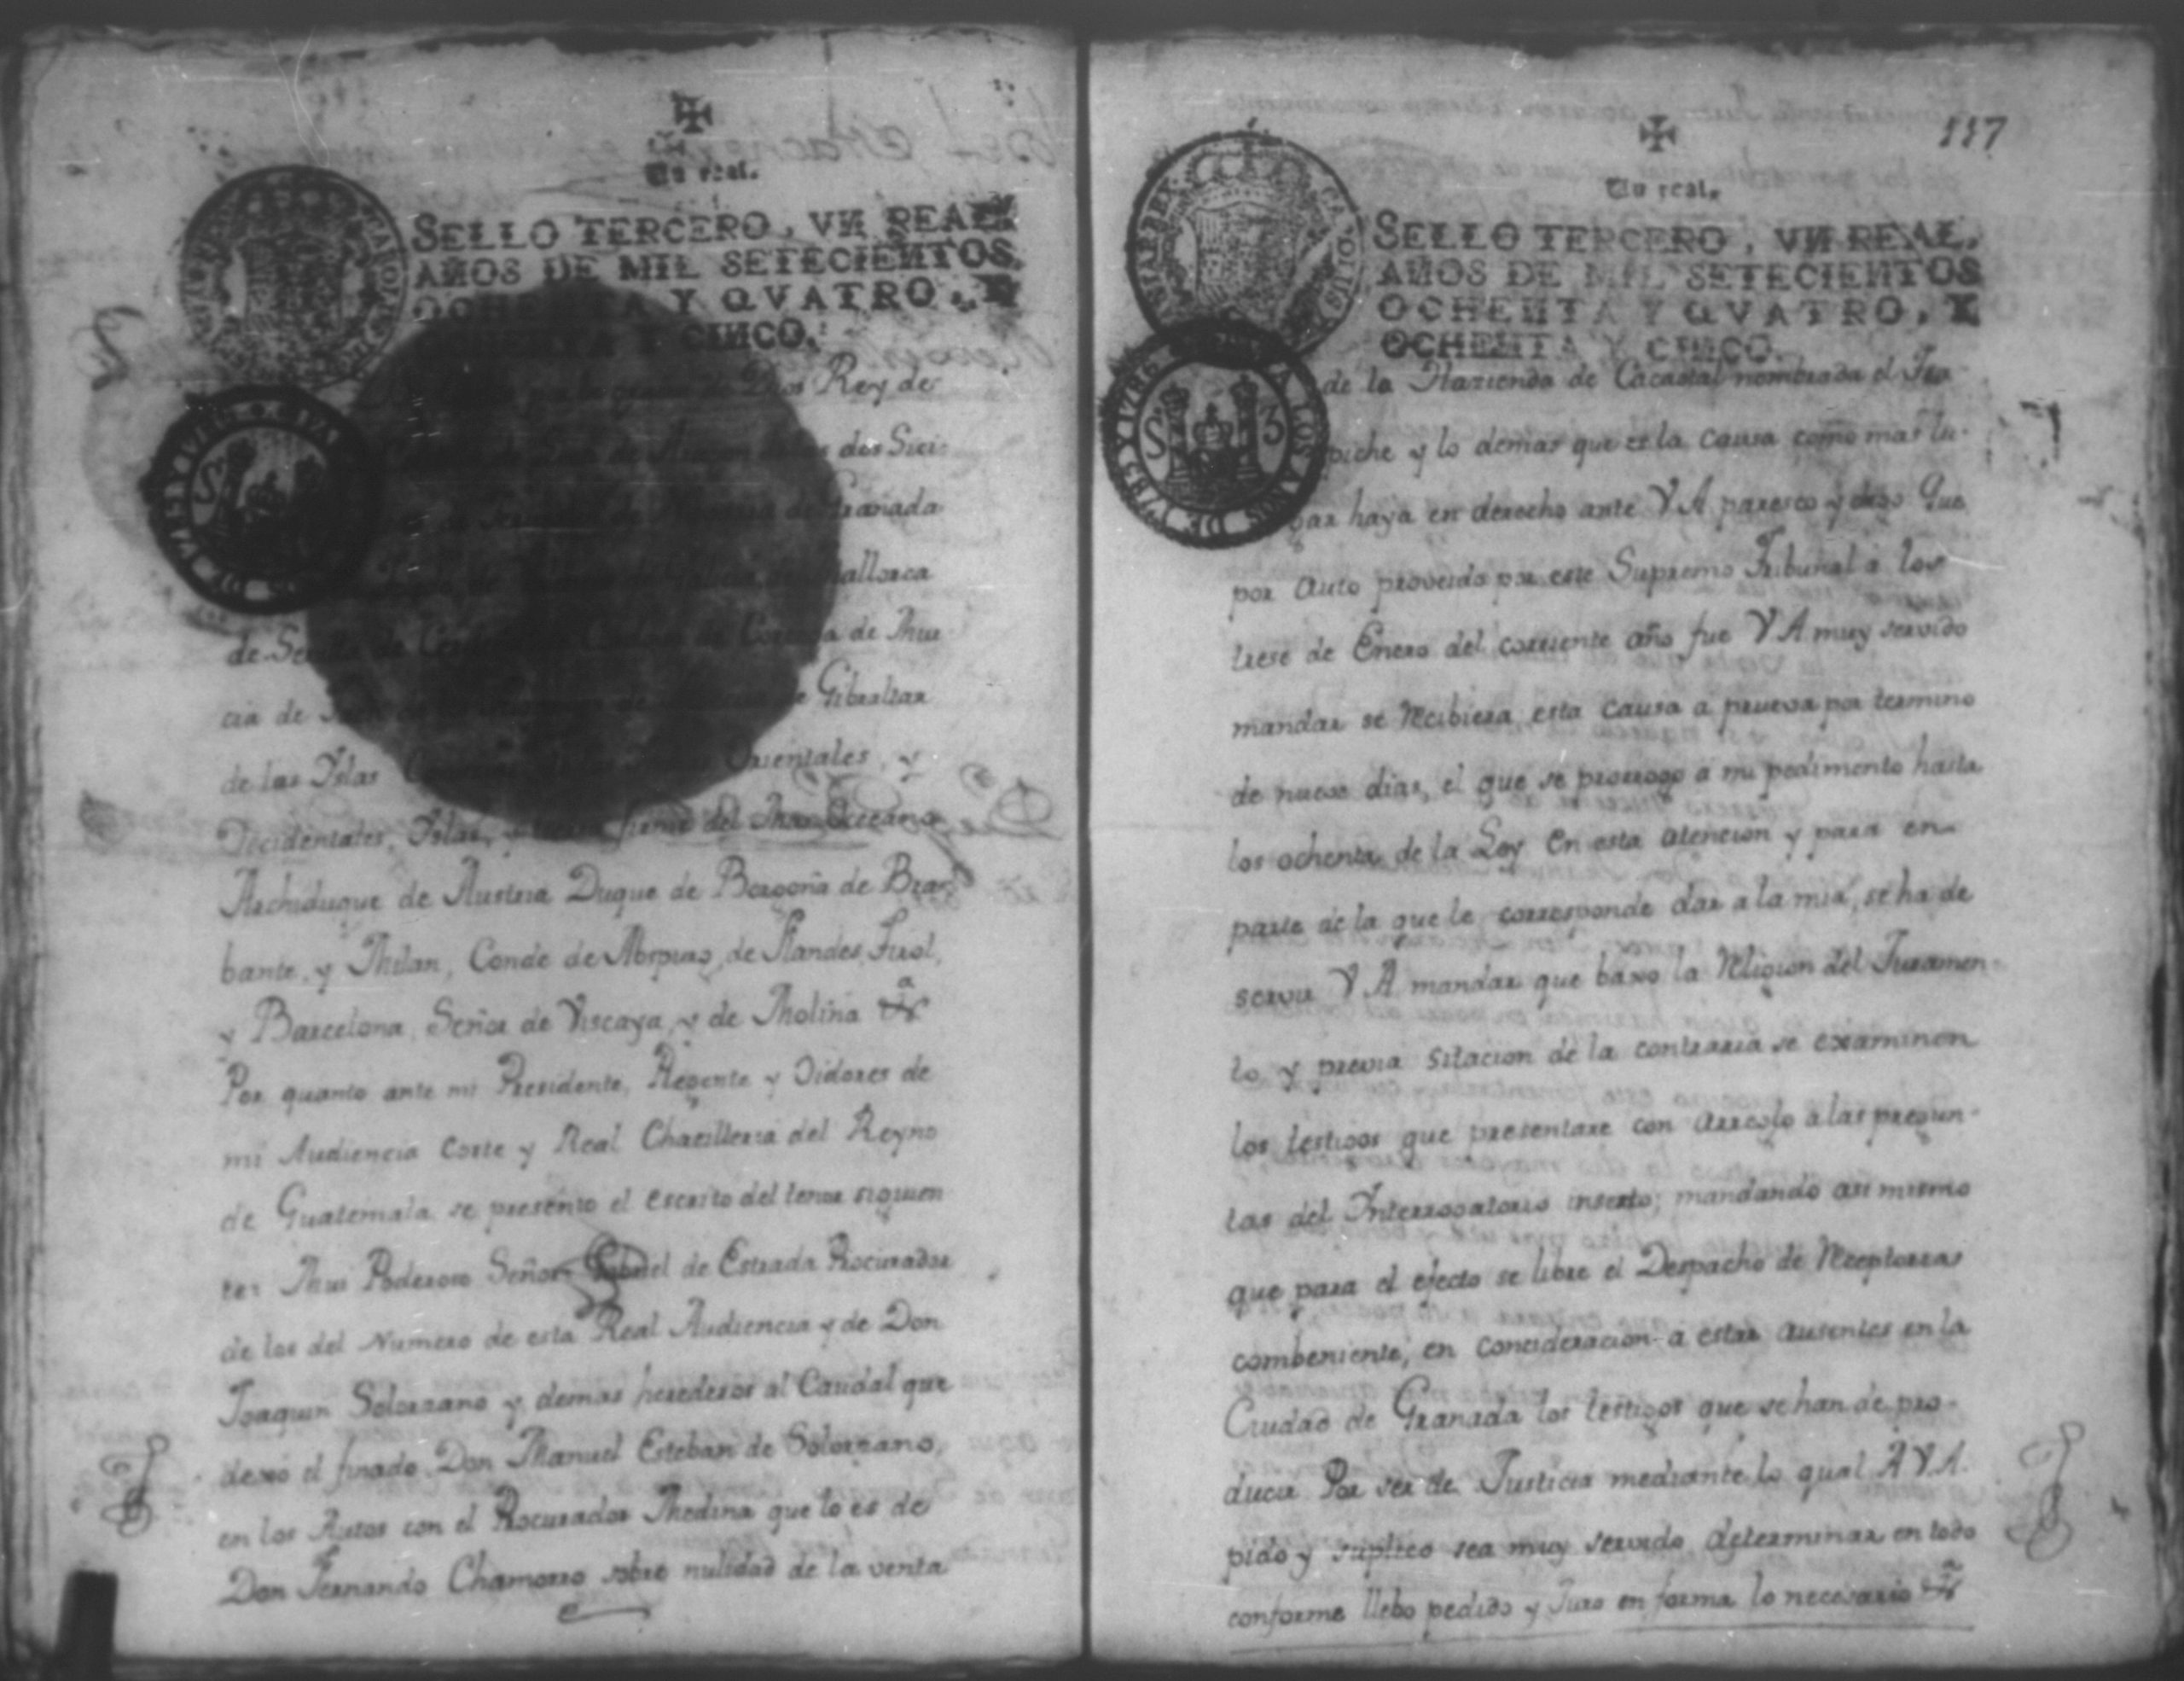 Un real.
SELLO TERCERO, VN REAL
AÑOS DE MIL SETECIENTOS
OCHENTA Y QVATRO, Y
OCHENTA Y CINCO.
por la gracia de Dios Rey de
de Leon de Aragon de las dos Sici-
de Granada
de Mallorca
de Sevilla de Cerdeña de Cordova de Corcega de Mur
cia de Gibraltar
de las Yslas Orientales, y
Occidentales, Yslas, y tierra firme del Mar Occeano
Archiduque de Austria Duque de Borgoña de Bra-
bante, y Milan, Conde de Abspurg, de Flandes, Tirol,
y Barcelona, Señor de Viscaya, y de Molina &a
Por quanto ante mi Presidente, Regente y Oidores de
mi Audiencia Corte y Real Chacilleria del Reyno
de Guatemala se presento el escrito del tenor siguien
te= Mui Poderoso Señor= Gabriel de Estrada Procurador
de los del Numero de esta Real Audiencia y de Don
Joaquin Solorzano y demas herederos al Caudal que
dexó el finado Don Manuel Esteban de Solorzano,
en los Autos con el Procurador Medina que lo es de
Don Fernando Chamorro sobre nulidad de la venta
117
Un real.
SELLO TERCERO, VN REAL,
AÑOS DE MIL SETECIENTOS
OCHENTA Y QVATRO, Y
OCHENTA Y CINCO.
S 3
de la Hazienda de Cacaotal nombrada el Tra
piche y lo demas que es la causa como mas lu-
gar haya en derecho ante V A paresco y digo Que
por auto proveido por este Supremo Tribunal a los
trese de Enero del corriente año fue V A muy servido
mandar se recibiera esta causa a prueva por termino
de nueve dias, el que se prorrogo a mi pedimento hasta
los ochenta de la Ley En esta atencion y para en
parte de la que le corresponde dar a la mia, se ha de
servir V A mandar que baxo la Religion del Juramen-
to, y previa sitacion de la contraria se examinen
los testigos que presentare con arreglo a las pregun-
tas del Interrogatorio inserto; mandando asi mismo
que para el efecto se libre el Despacho de Receptorias
combeniente, en concideracion a estar ausentes en la
Ciudad de Granada los testigos que se han de pro-
ducir Por ser de Justicia mediante lo qual A V A.
pido y suplico sea muy servido determinar en todo
conforme llebo pedido y Juro en forma lo necesario &a